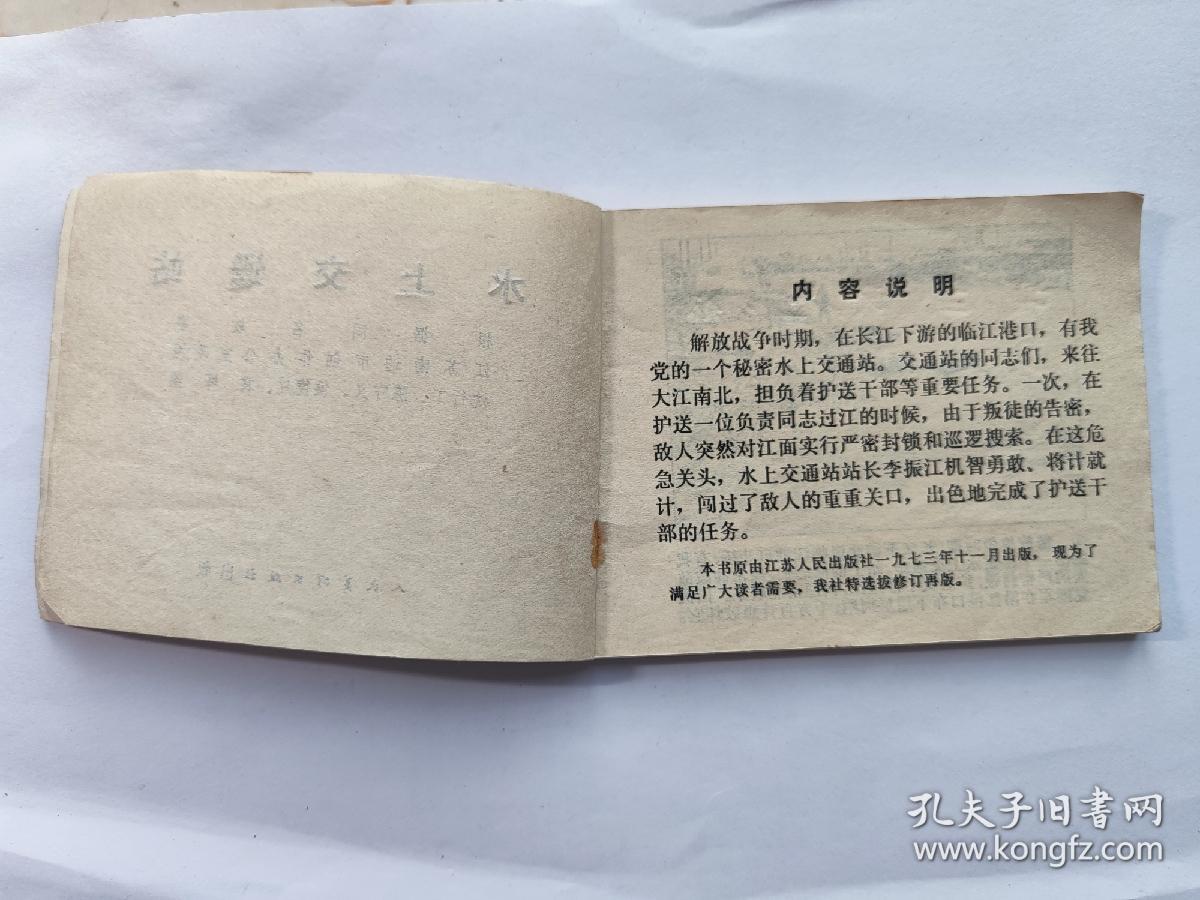 水上交通站
人民美术出版社
内容说明
解放战争时期，在长江下游的临江港口，有我
党的一个秘密水上交通站。交通站的同志们，来往
大江南北，担负着护送干部等重要任务。一次，在
护送一位负责同志过江的时候，由于叛徒的告密，
敌人突然对江面实行严密封锁和巡逻搜索。在这危
急关头，水上交通站站长李振江机智勇敢、将计就
计，闯过了敌人的重重关口，出色地完成了护送干
部的任务。
本书原由江苏人民出版社一九七三年十一月出版，现为了
满足广大读者需要，我社特选拔修订再版。
孔夫子旧书网
www.kongfz.com